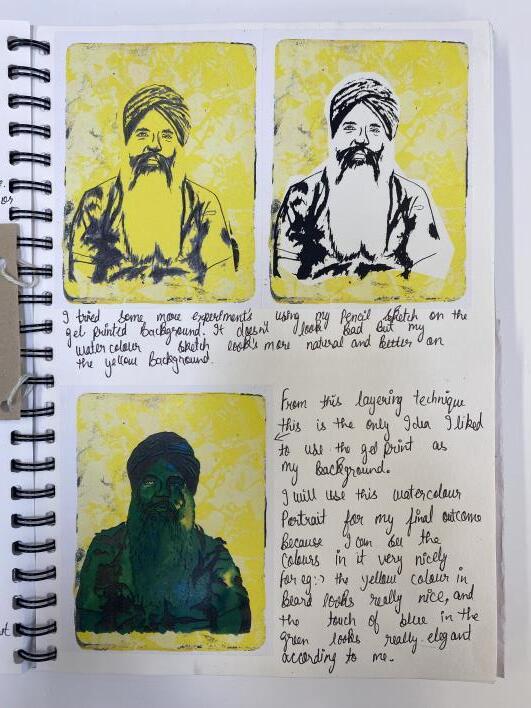 I tried some more experiments using my Pencil sketch on the
gel printed background. It doesn't look bad but my
watercolour sketch look's more natural and better on
the yellow background.
From this layering technique
this is the only Idea I liked
to use the gel print as
my background.
I will use this watercolour
Portrait for my final outcome
because I can see the
colours in it very nicely
for eg:→ the yellow colour in
beard looks really nice, and
the touch of blue in the
green looks really elegant
according to me.
or